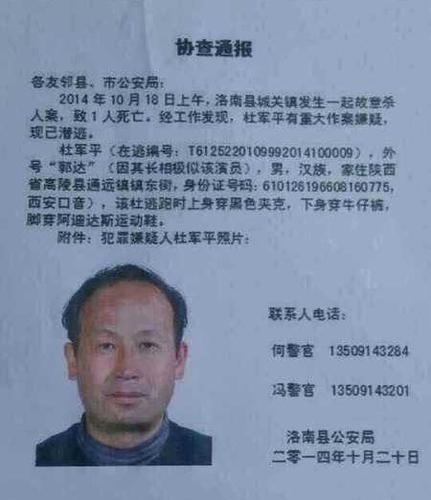 协查通报
各友邻县、市公安局：
2014年10月18日上午，洛南县城关镇发生一起故意杀
人案，致1人死亡。经工作发现，杜军平有重大作案嫌疑，
现已潜逃。
杜军平（在逃编号：T6125220109992014100009），外
号“郭达”（因其长相极似该演员），男，汉族，家住陕西
省高陵县通远镇镇东街，身份证号码：610126196608160775，
西安口音），该杜逃跑时上身穿黑色夹克，下身穿牛仔裤，
脚穿阿迪达斯运动鞋。
附件：犯罪嫌疑人杜军平照片：
联系人电话：
何警官 13509143284
冯警官 13509143201
洛南县公安局
二〇一四年十月二十日